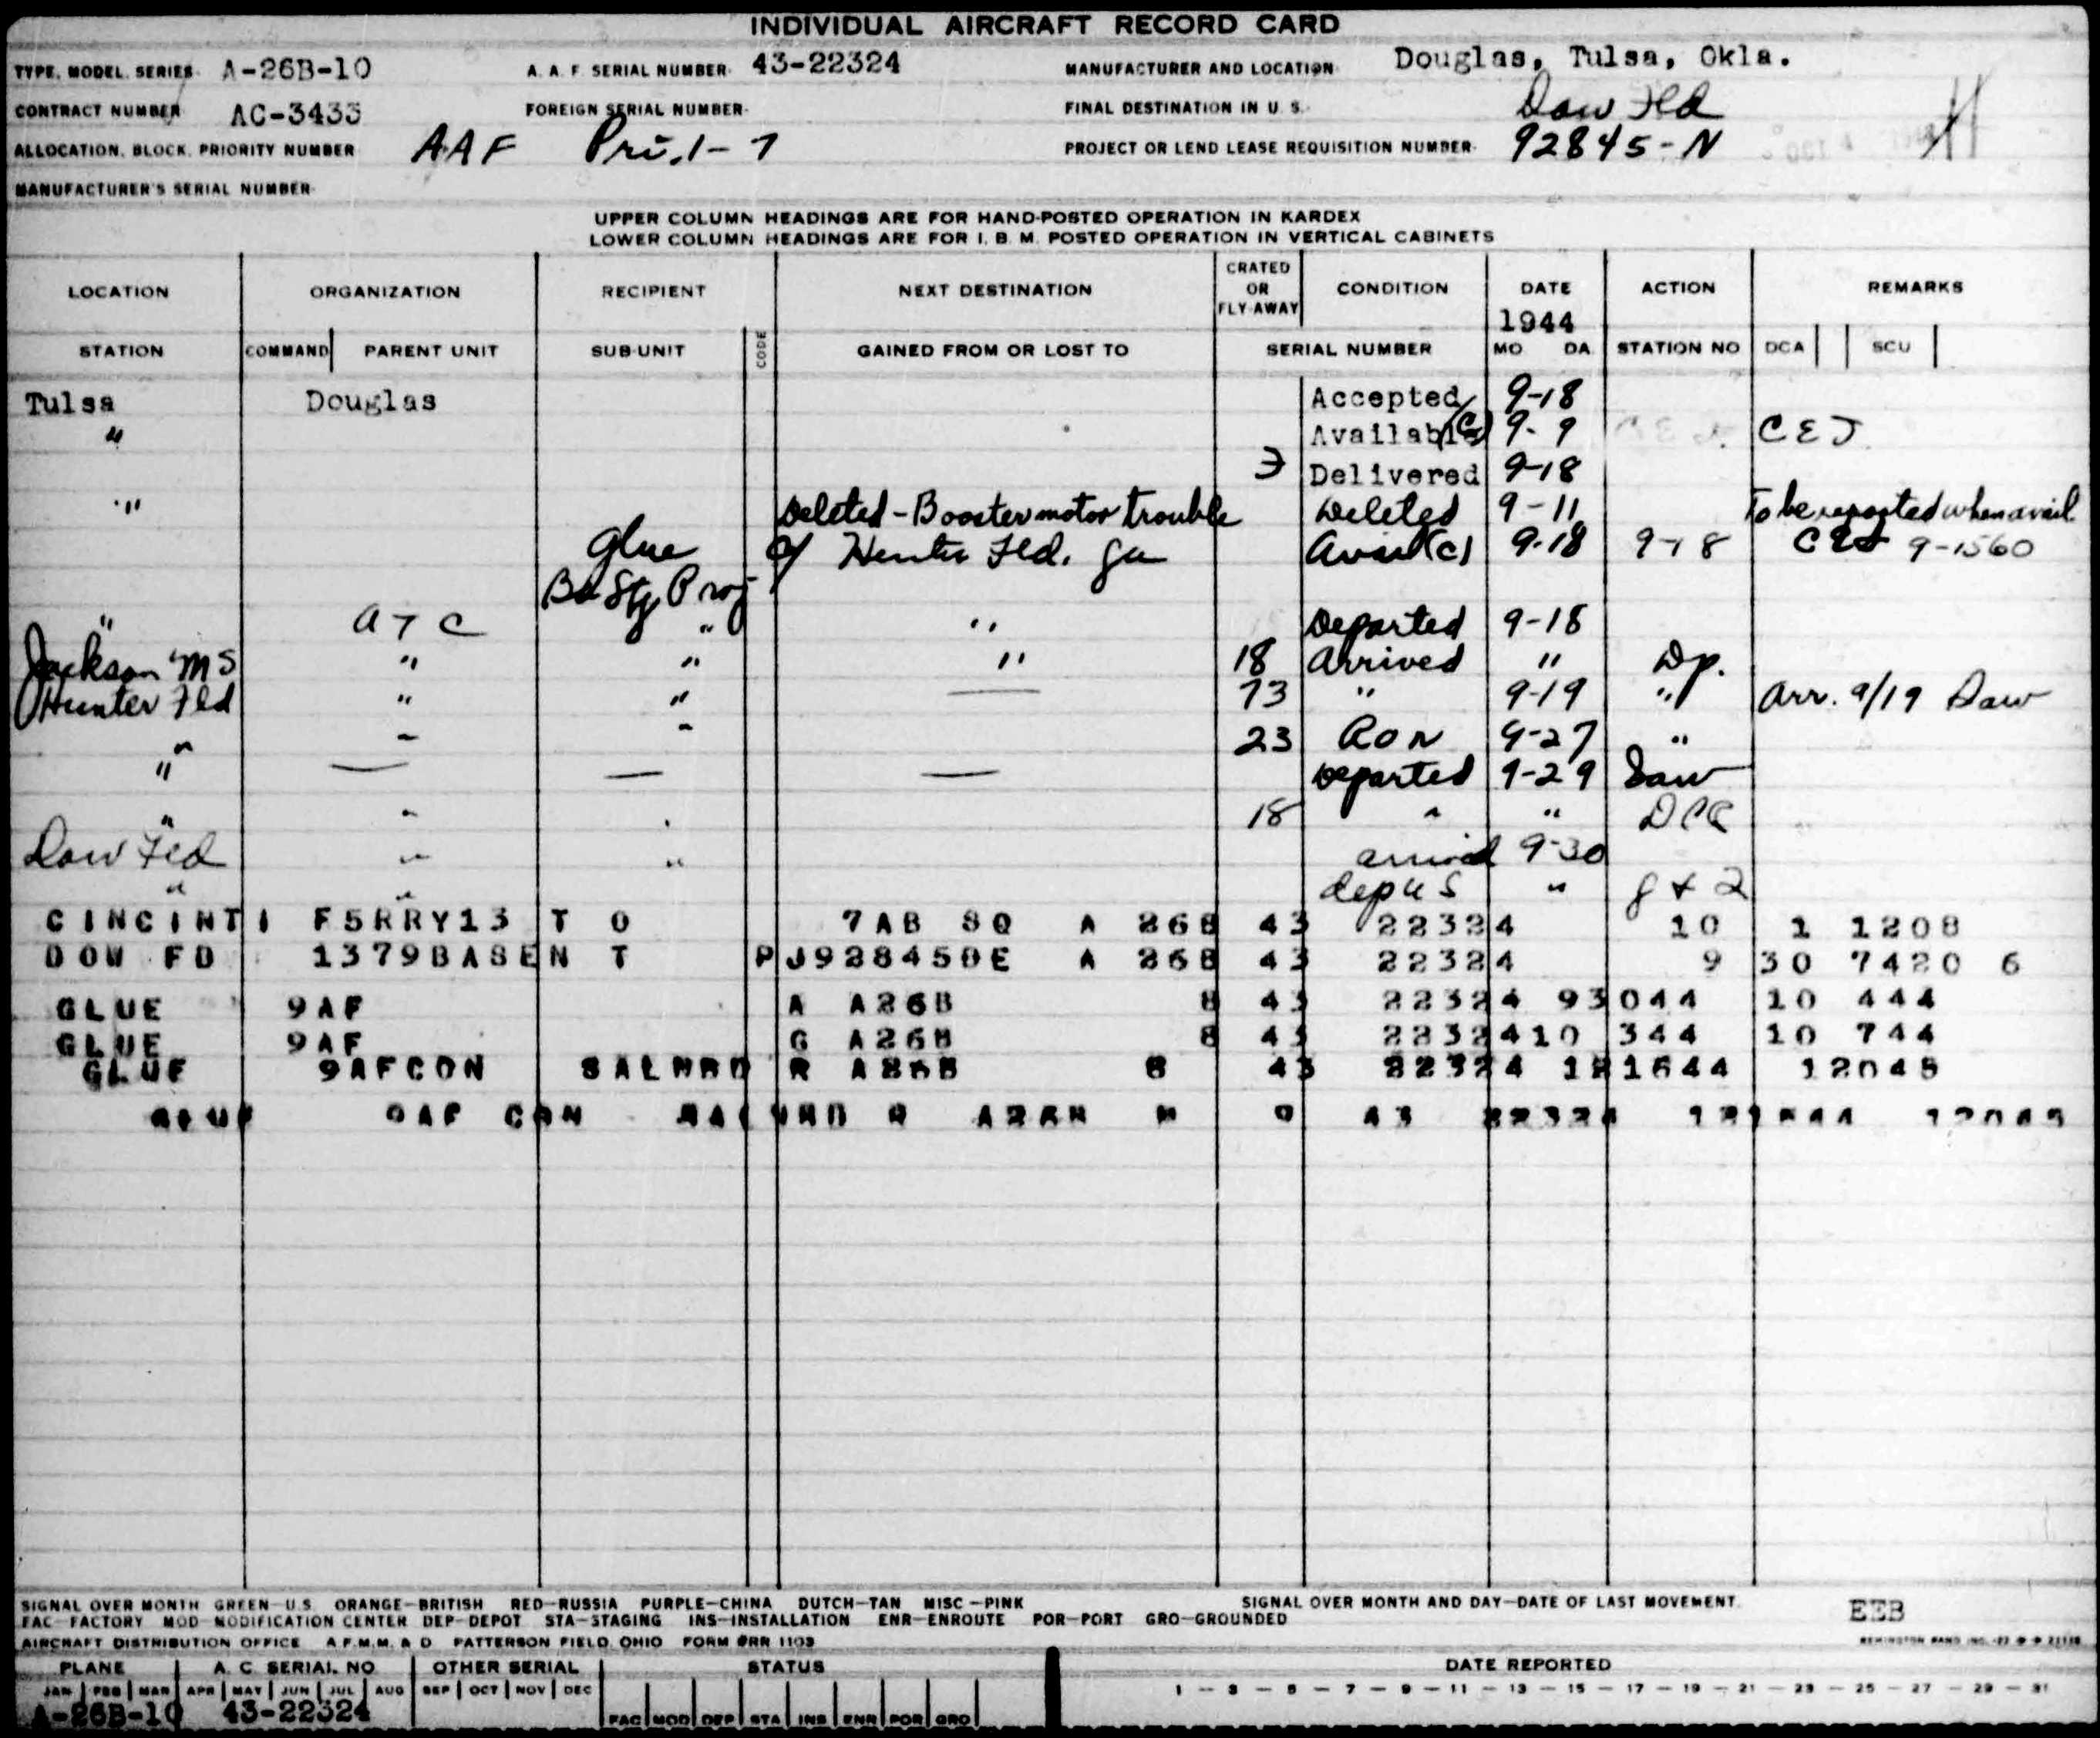 INDIVIDUAL AIRCRAFT RECORD CARD
TYPE, MODEL, SERIES A-26B-10 A. A. F. SERIAL NUMBER 43-22324 MANUFACTURER AND LOCATION Douglas, Tulsa, Okla.
CONTRACT NUMBER AC-3433 FOREIGN SERIAL NUMBER FINAL DESTINATION IN U. S. Dow Fld
ALLOCATION, BLOCK, PRIORITY NUMBER AAF Pri. 1-7 PROJECT OR LEND LEASE REQUISITION NUMBER 92845-N
MANUFACTURER'S SERIAL NUMBER
UPPER COLUMN HEADINGS ARE FOR HAND-POSTED OPERATION IN KARDEX
LOWER COLUMN HEADINGS ARE FOR I. B. M. POSTED OPERATION IN VERTICAL CABINETS
LOCATION ORGANIZATION RECIPIENT NEXT DESTINATION CRATED OR FLY-AWAY CONDITION DATE ACTION REMARKS
1944
STATION COMMAND PARENT UNIT SUB-UNIT CODE GAINED FROM OR LOST TO SERIAL NUMBER MO DA STATION NO DCA SCU
Tulsa Douglas Accepted 9-18
" Available (C) 9-9 CEJ
Delivered 9-18
" Deleted - Booster motor trouble Deleted 9-11 To be reported when avail.
Glue Hunter Fld. Ga Avail (c) 9-18 9-18 9-1560
Ba Stg Proj
" ATC " " Departed 9-18
Jackson MS " " " 18 Arrived " Dp.
Hunter Fld " " — 73 " 9-19 " Arr. 9/19 Daw
" " " 23 RON 9-27 "
" — — — Departed 9-29 Daw
" " " 18 " "
Dow Fld " " arrived 9-30
" " dep US "
CINCINTI F5RRY13 T O 7AB SQ A 26B 43 22324 10 1 1208
DOW FD 1379BASEN T PJ92845DE A 26B 43 22324 9 30 7420 6
GLUE 9AF A A26B 8 43 22324 93044 10 444
GLUE 9AF G A26B 8 43 2232410 344 10 744
GLUE 9AFCON SALMRD R A26B 8 43 22324 121644 12045
43 22324 121644 12045
SIGNAL OVER MONTH GREEN—U.S. ORANGE—BRITISH RED—RUSSIA PURPLE—CHINA DUTCH—TAN MISC—PINK SIGNAL OVER MONTH AND DAY—DATE OF LAST MOVEMENT.
FAC—FACTORY MOD—MODIFICATION CENTER DEP—DEPOT STA—STAGING INS—INSTALLATION ENR—ENROUTE POR—PORT GRO—GROUNDED EEB
AIRCRAFT DISTRIBUTION OFFICE A.F.M.M. & D. PATTERSON FIELD, OHIO FORM #RR 1103 REMINGTON RAND INC.
PLANE A. C. SERIAL NO OTHER SERIAL STATUS DATE REPORTED
JAN FEB MAR APR MAY JUN JUL AUG SEP OCT NOV DEC 1 — 3 — 5 — 7 — 9 — 11 — 13 — 15 — 17 — 19 — 21 — 23 — 25 — 27 — 29 — 31
A-26B-10 43-22324 FAC MOD DEP STA INS ENR POR GRO